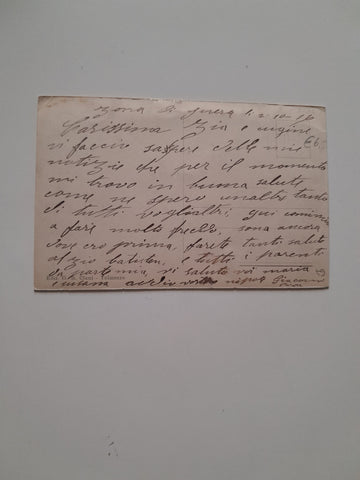 Zona di guera 1. 2 10 16
Carissima Zia e cugine
vi faccio sapere delle mie
notizie che per il momento
mi trovo in buona salute
come ne spero unaltro tanto
di tutti vogliatri, qui comincia
a fare molto freddo, sono ancora
dove ero prima, farete tanti saluti
al zio e tutti i parenti
da parte mia, vi saluto voi maria
vostro nipote Giacomo